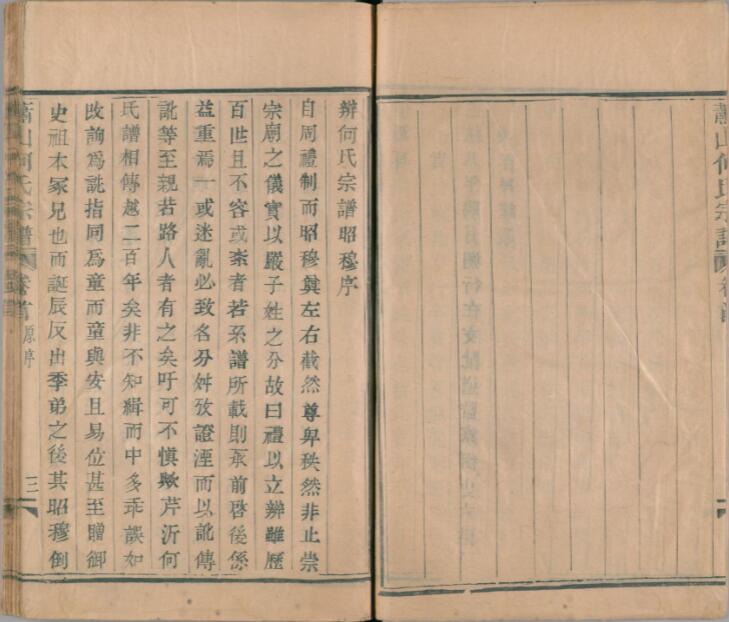 蕭山何氏宗譜
卷首
辨何氏宗譜昭穆序
自周禮制而昭穆奠左右截然尊卑秩然非止崇
宗廟之儀實以嚴子姓之分故曰禮以立辨雖歷
百世且不容或紊者若系譜所載則承前啓後係
益重焉一或迷亂必致名分舛攷證湮而以訛傳
訛等至親若路人者有之矣吁可不慎歟芹沂何
氏譜相傳越二百年矣非不知緝而中多乖誤如
改詢為詵指同為童而童與安且易位甚至贈御
史祖本冢兄也而誕辰反出季弟之後其昭穆倒
蕭山何氏宗譜
卷首
原序
三